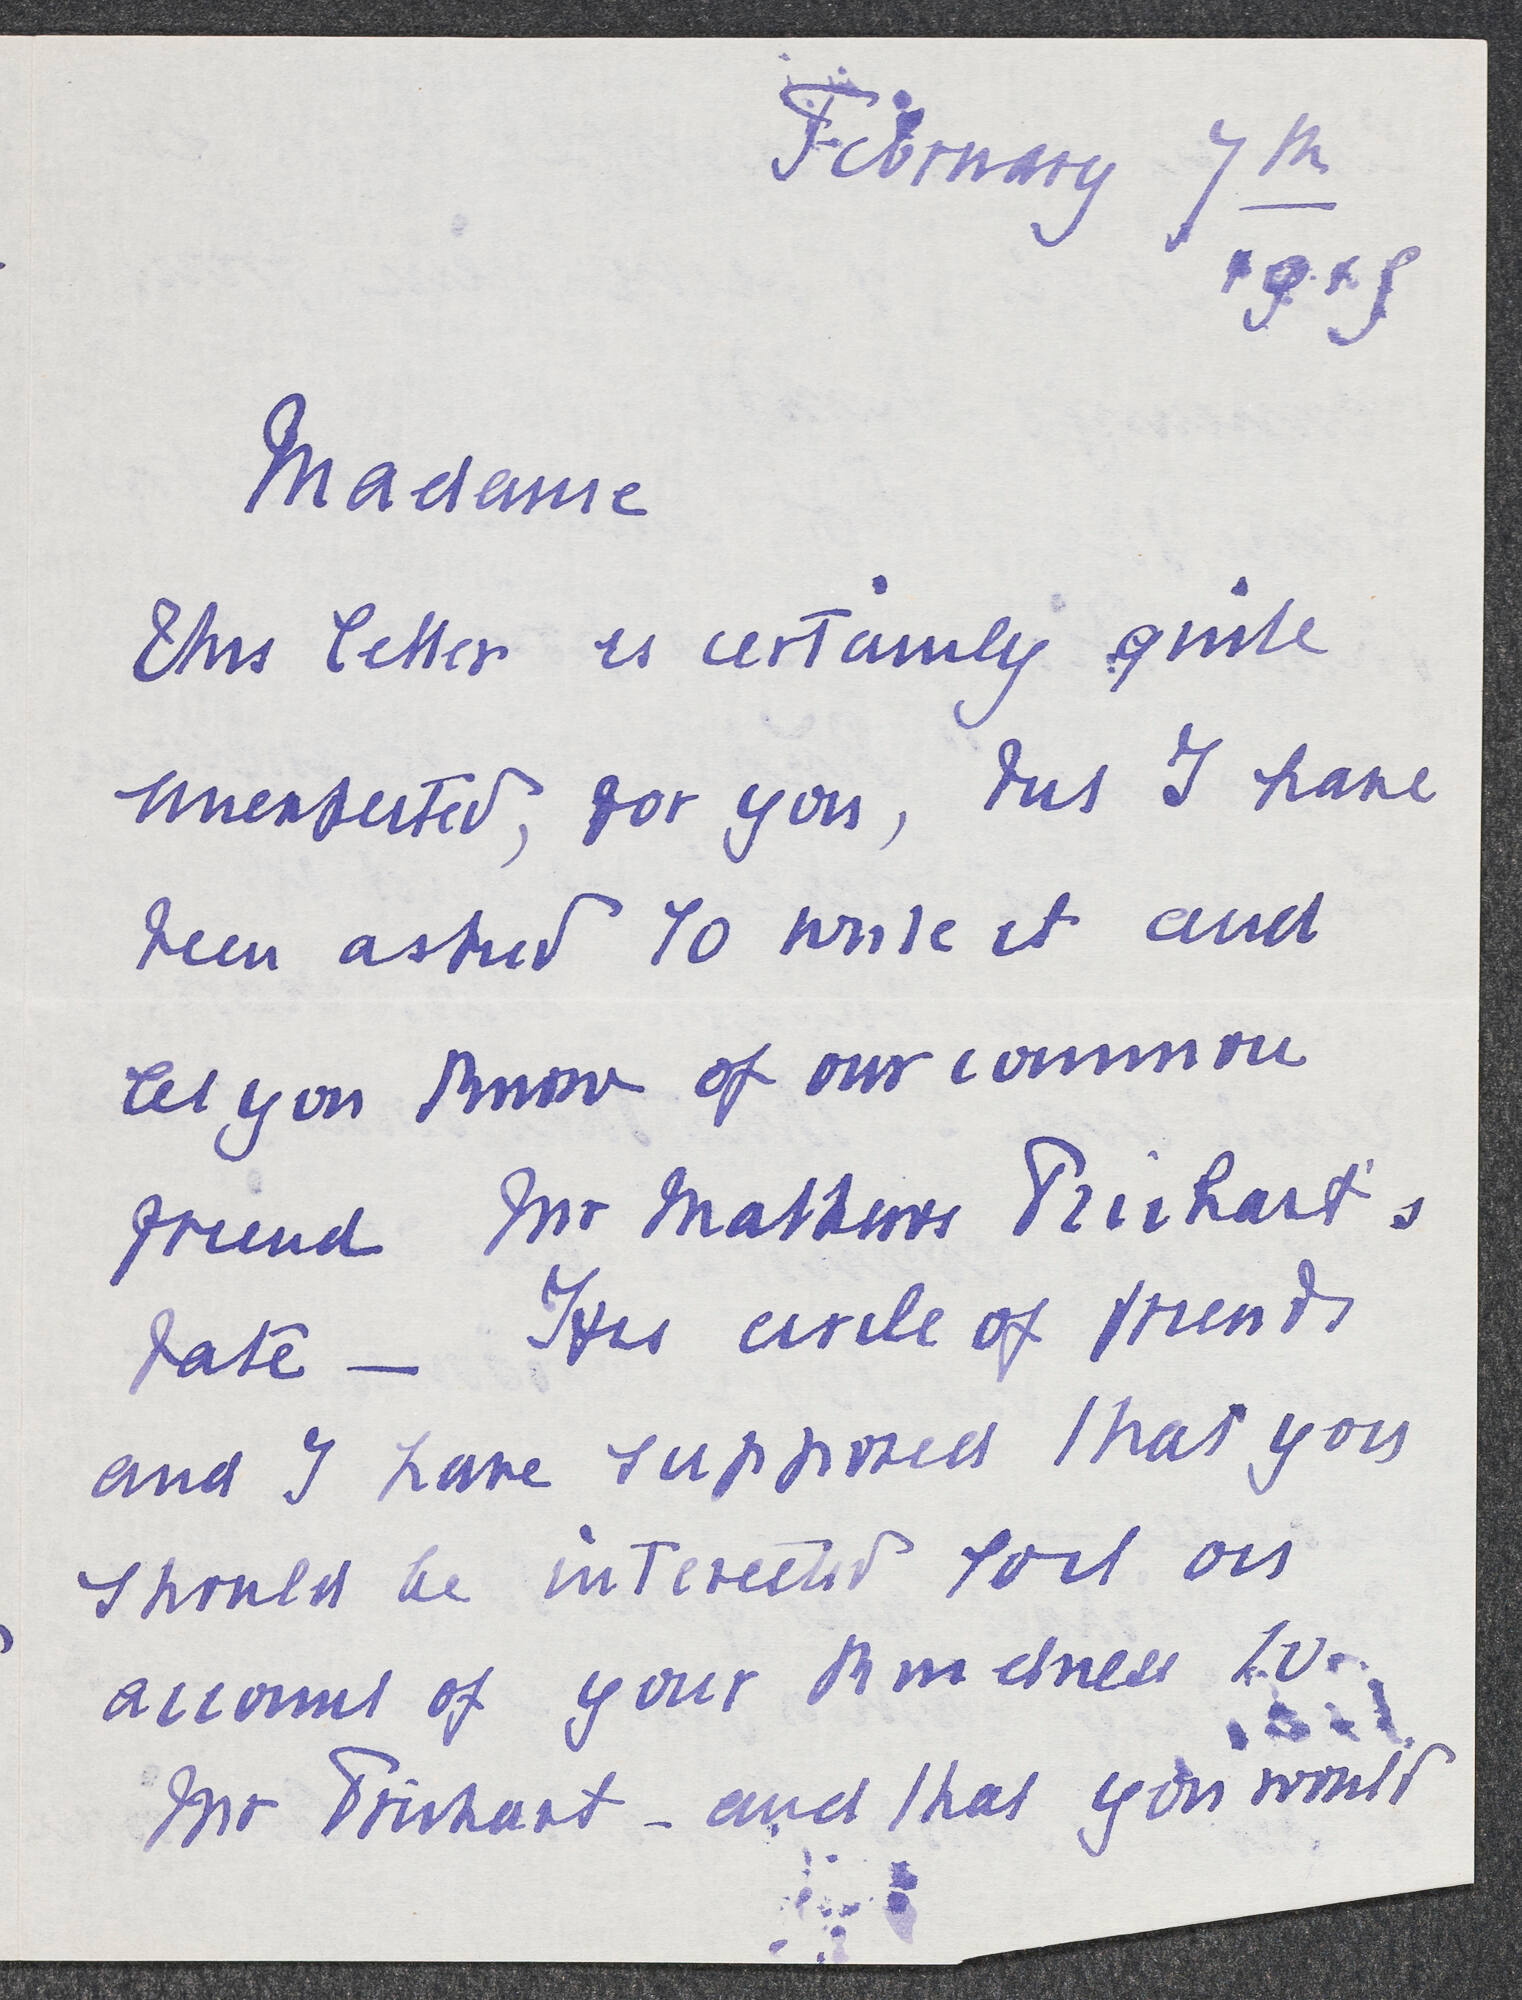 February 7th
1915
Madame
This letter is certainly quite
unexpected, for you, but I have
been asked to write it and
let you know of our common
friend Mr Mathews Prichart's
fate — His circle of friends
and I have supposed that you
should be interested
account of your kindness to
Mr Prichart - and that you would